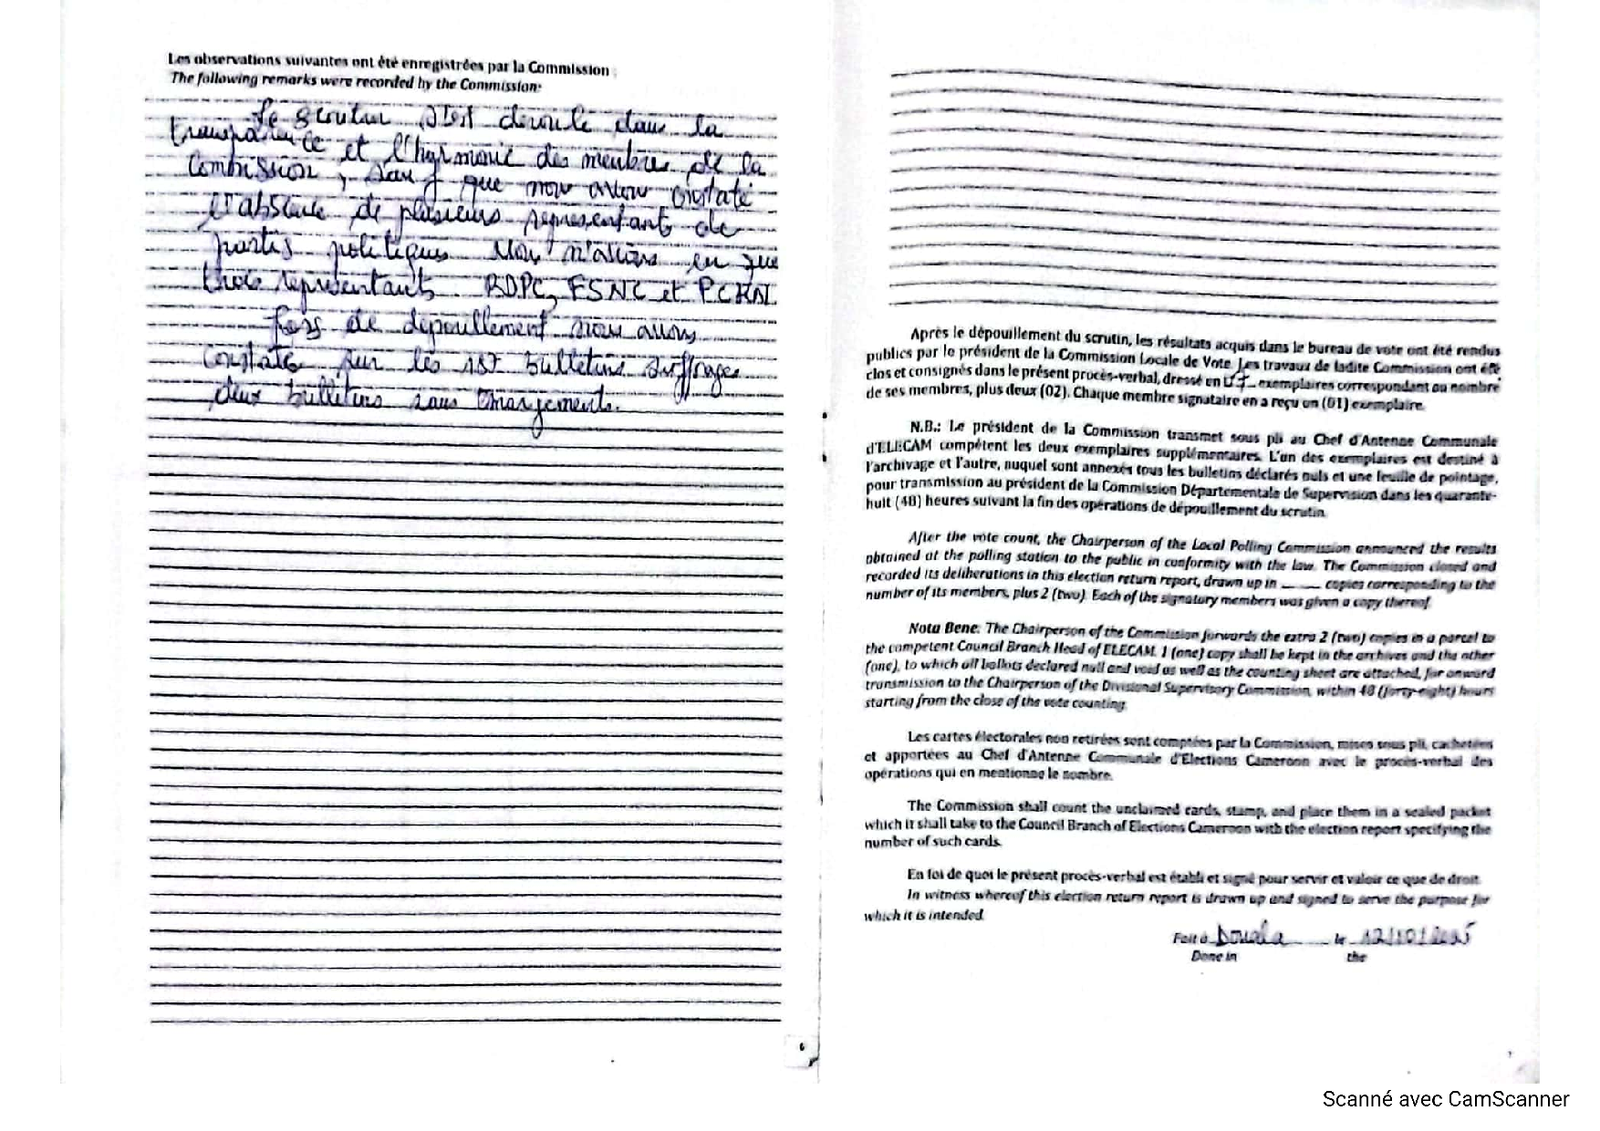 Les observations suivantes ont été enregistrées par la Commission :
The following remarks were recorded by the Commission:
Le scrutin s'est déroulé dans la
transparence et l'harmonie des membres de la
Commission, sauf que nous avons constaté
l'absence de plusieurs représentants de
partis politiques Nous n'avions eu que
trois représentants RDPC, FSNC et PCRN
Lors de dépouillement nous avons
constaté sur les bulletins suffrages
deux bulletins sans émargements.
Après le dépouillement du scrutin, les résultats acquis dans le bureau de vote ont été rendus
publics par le président de la Commission Locale de Vote. Les travaux de ladite Commission ont été
clos et consignés dans le présent procès-verbal, dressé en exemplaires correspondant au nombre
de ses membres, plus deux (02). Chaque membre signataire en a reçu un (01) exemplaire.
N.B.: Le président de la Commission transmet sous pli au Chef d'Antenne Communale
d'ELECAM compétent les deux exemplaires supplémentaires. L'un des exemplaires est destiné à
l'archivage et l'autre, auquel sont annexés tous les bulletins déclarés nuls et une feuille de pointage,
pour transmission au président de la Commission Départementale de Supervision dans les quarante-
huit (48) heures suivant la fin des opérations de dépouillement du scrutin.
After the vote count, the Chairperson of the Local Polling Commission announced the results
obtained at the polling station to the public in conformity with the law. The Commission closed and
recorded its deliberations in this election return report, drawn up in ____ copies corresponding to the
number of its members, plus 2 (two). Each of the signatory members was given a copy thereof.
Nota Bene: The Chairperson of the Commission forwards the extra 2 (two) copies in a parcel to
the competent Council Branch Head of ELECAM. 1 (one) copy shall be kept in the archives and the other
(one), to which all ballots declared null and void as well as the counting sheet are attached, for onward
transmission to the Chairperson of the Divisional Supervisory Commission, within 48 (forty-eight) hours
starting from the close of the vote counting.
Les cartes électorales non retirées sont comptées par la Commission, mises sous pli, cachetées
et apportées au Chef d'Antenne Communale d'Elections Cameroon avec le procès-verbal des
opérations qui en mentionne le nombre.
The Commission shall count the unclaimed cards, stamp, and place them in a sealed packet
which it shall take to the Council Branch of Elections Cameroon with the election report specifying the
number of such cards.
En foi de quoi le présent procès-verbal est établi et signé pour servir et valoir ce que de droit.
In witness whereof this election return report is drawn up and signed to serve the purpose for
which it is intended.
Fait à Douala le 12/10/2025
Done in the
Scanné avec CamScanner